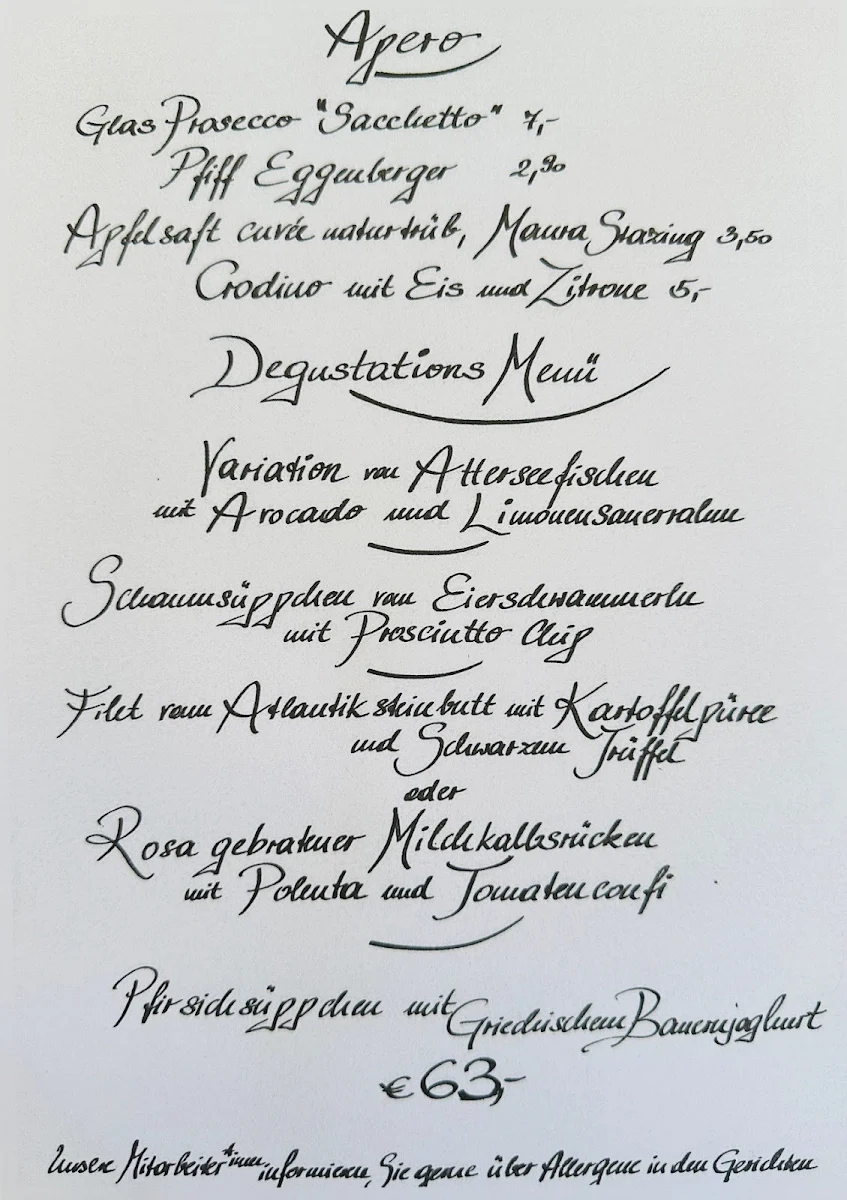 Apero
Glas Prosecco "Sacchetto" 7,-
Pfiff Eggenberger 2,90
Apfelsaft cuvée naturtrüb, Maura Stazing 3,50
Crodino mit Eis und Zitrone 5,-
Degustations Menü
Variation von Atterseefischen
mit Avocado und Limonensauerrahm
Schaumsüppchen vom Eierschwammerln
mit Prosciutto Chip
Filet vom Atlantiksteinbutt mit Kartoffelpüree
und Schwarzem Trüffel
oder
Rosa gebratener Milchkalbsrücken
mit Polenta und Tomatenconfi
Pfirsichsüppchen mit Griechischem Bauernjoghurt
€ 63,-
Unsere Mitarbeiter*innen informieren, Sie gerne über Allergene in den Gerichten